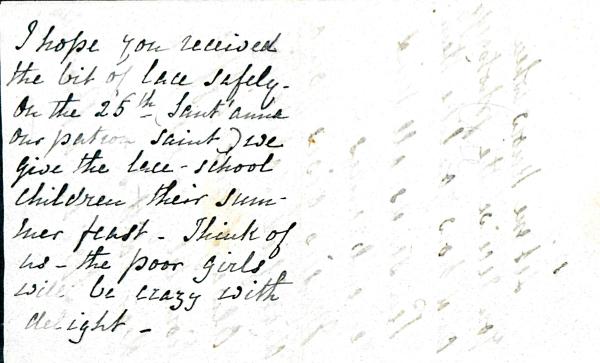 I hope you received
the bit of lace safely-
On the 25th (Sant'anna
our patron saint) we
give the lace-school
children their sum-
mer feast - Think of
us - the poor girls
will be crazy with
delight -